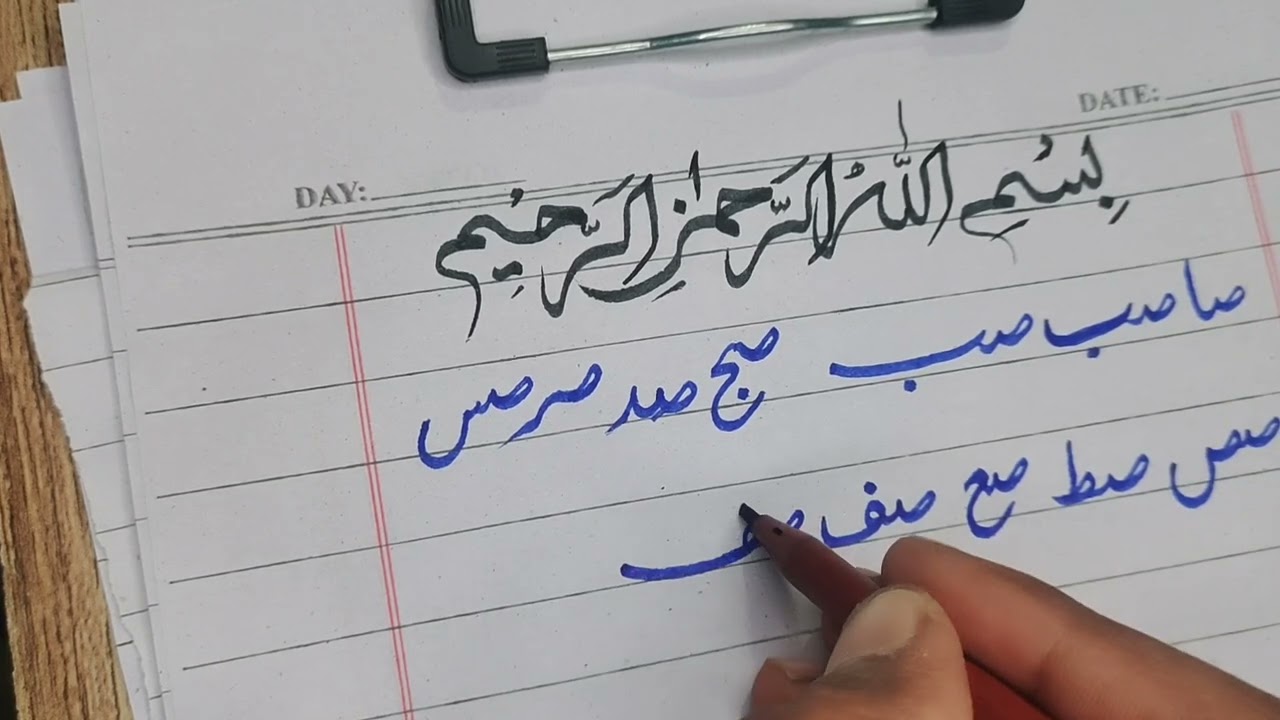 DATE:
DAY:
بِسْمِ اللّٰهُ الرَّحْمٰنِ الرَّحِيْمِ
صا صب صب صج صد صر صس
صص صط صع صف صف